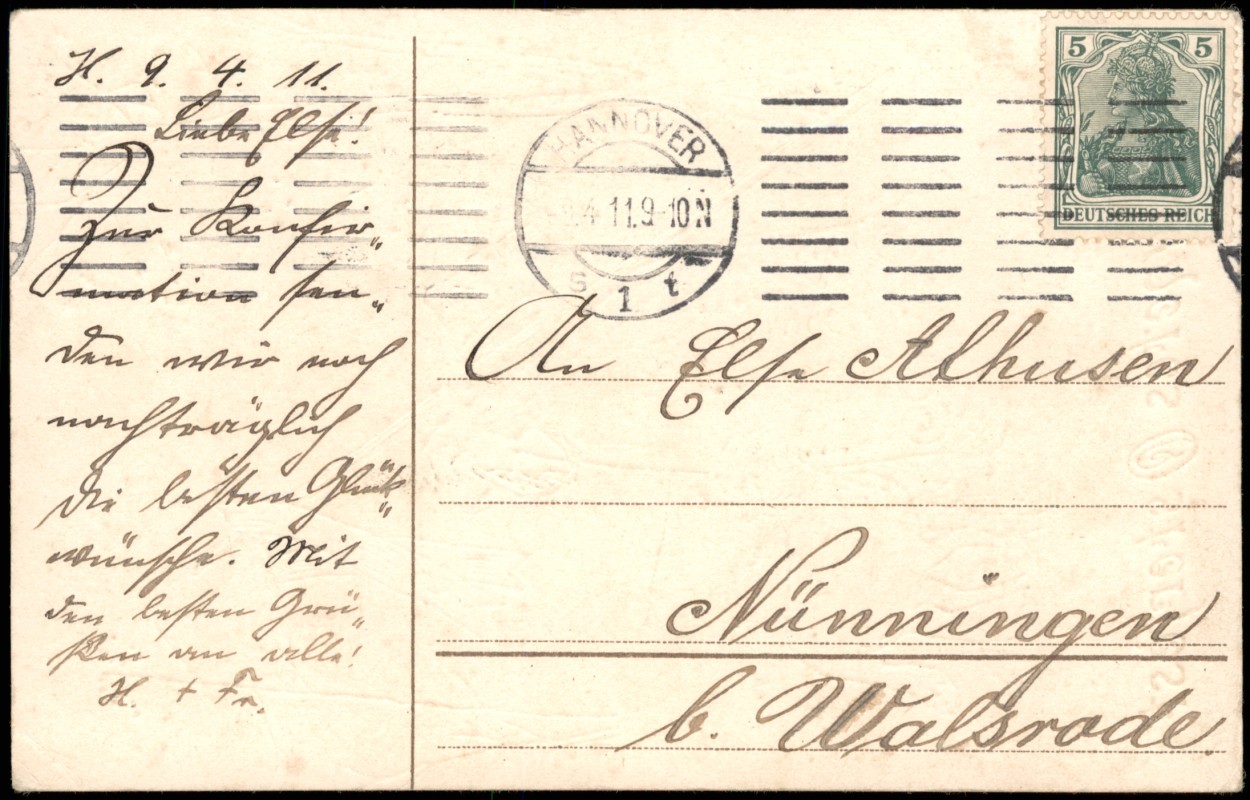 H. 9. 4. 11.
Liebe Else!
Zur Konfir„
mation sen„
den wir noch
nachträglich
die besten Glück„
wünsche. Mit
den besten Grü„
ßen an alle!
H. + Fr.
HANNOVER
4.11.9-10N
1
5 5
DEUTSCHES REICH
An Else Alhusen
Nünningen
b. Walsrode.